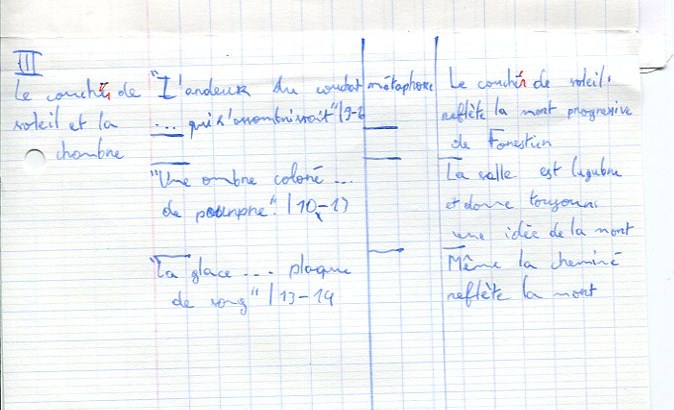 III
Le couché de
soleil et la
chambre
"L'ardeur du combat
... qui s'assombrissait" l 9-
métaphore
Le couché de soleil
reflète la mort progressive
de Forestier
"Une ombre colorée ...
de pourpre" l 10-13
La salle est lugubre
et donne toujours
une idée de la mort
"La glace ... plaque
de sang" l 13-14
Même la cheminé
reflète la mort